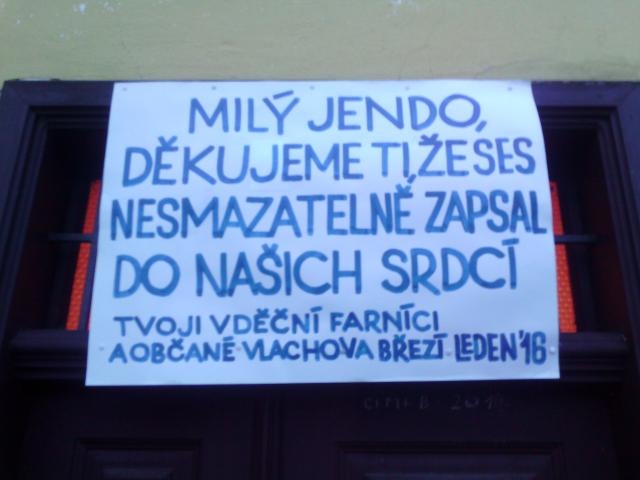 MILÝ JENDO,
DĚKUJEME TI, ŽE SES
NESMAZATELNĚ ZAPSAL
DO NAŠICH SRDCÍ
TVOJI VDĚČNÍ FARNÍCI
A OBČANÉ VLACHOVA BŘEZÍ LEDEN'16